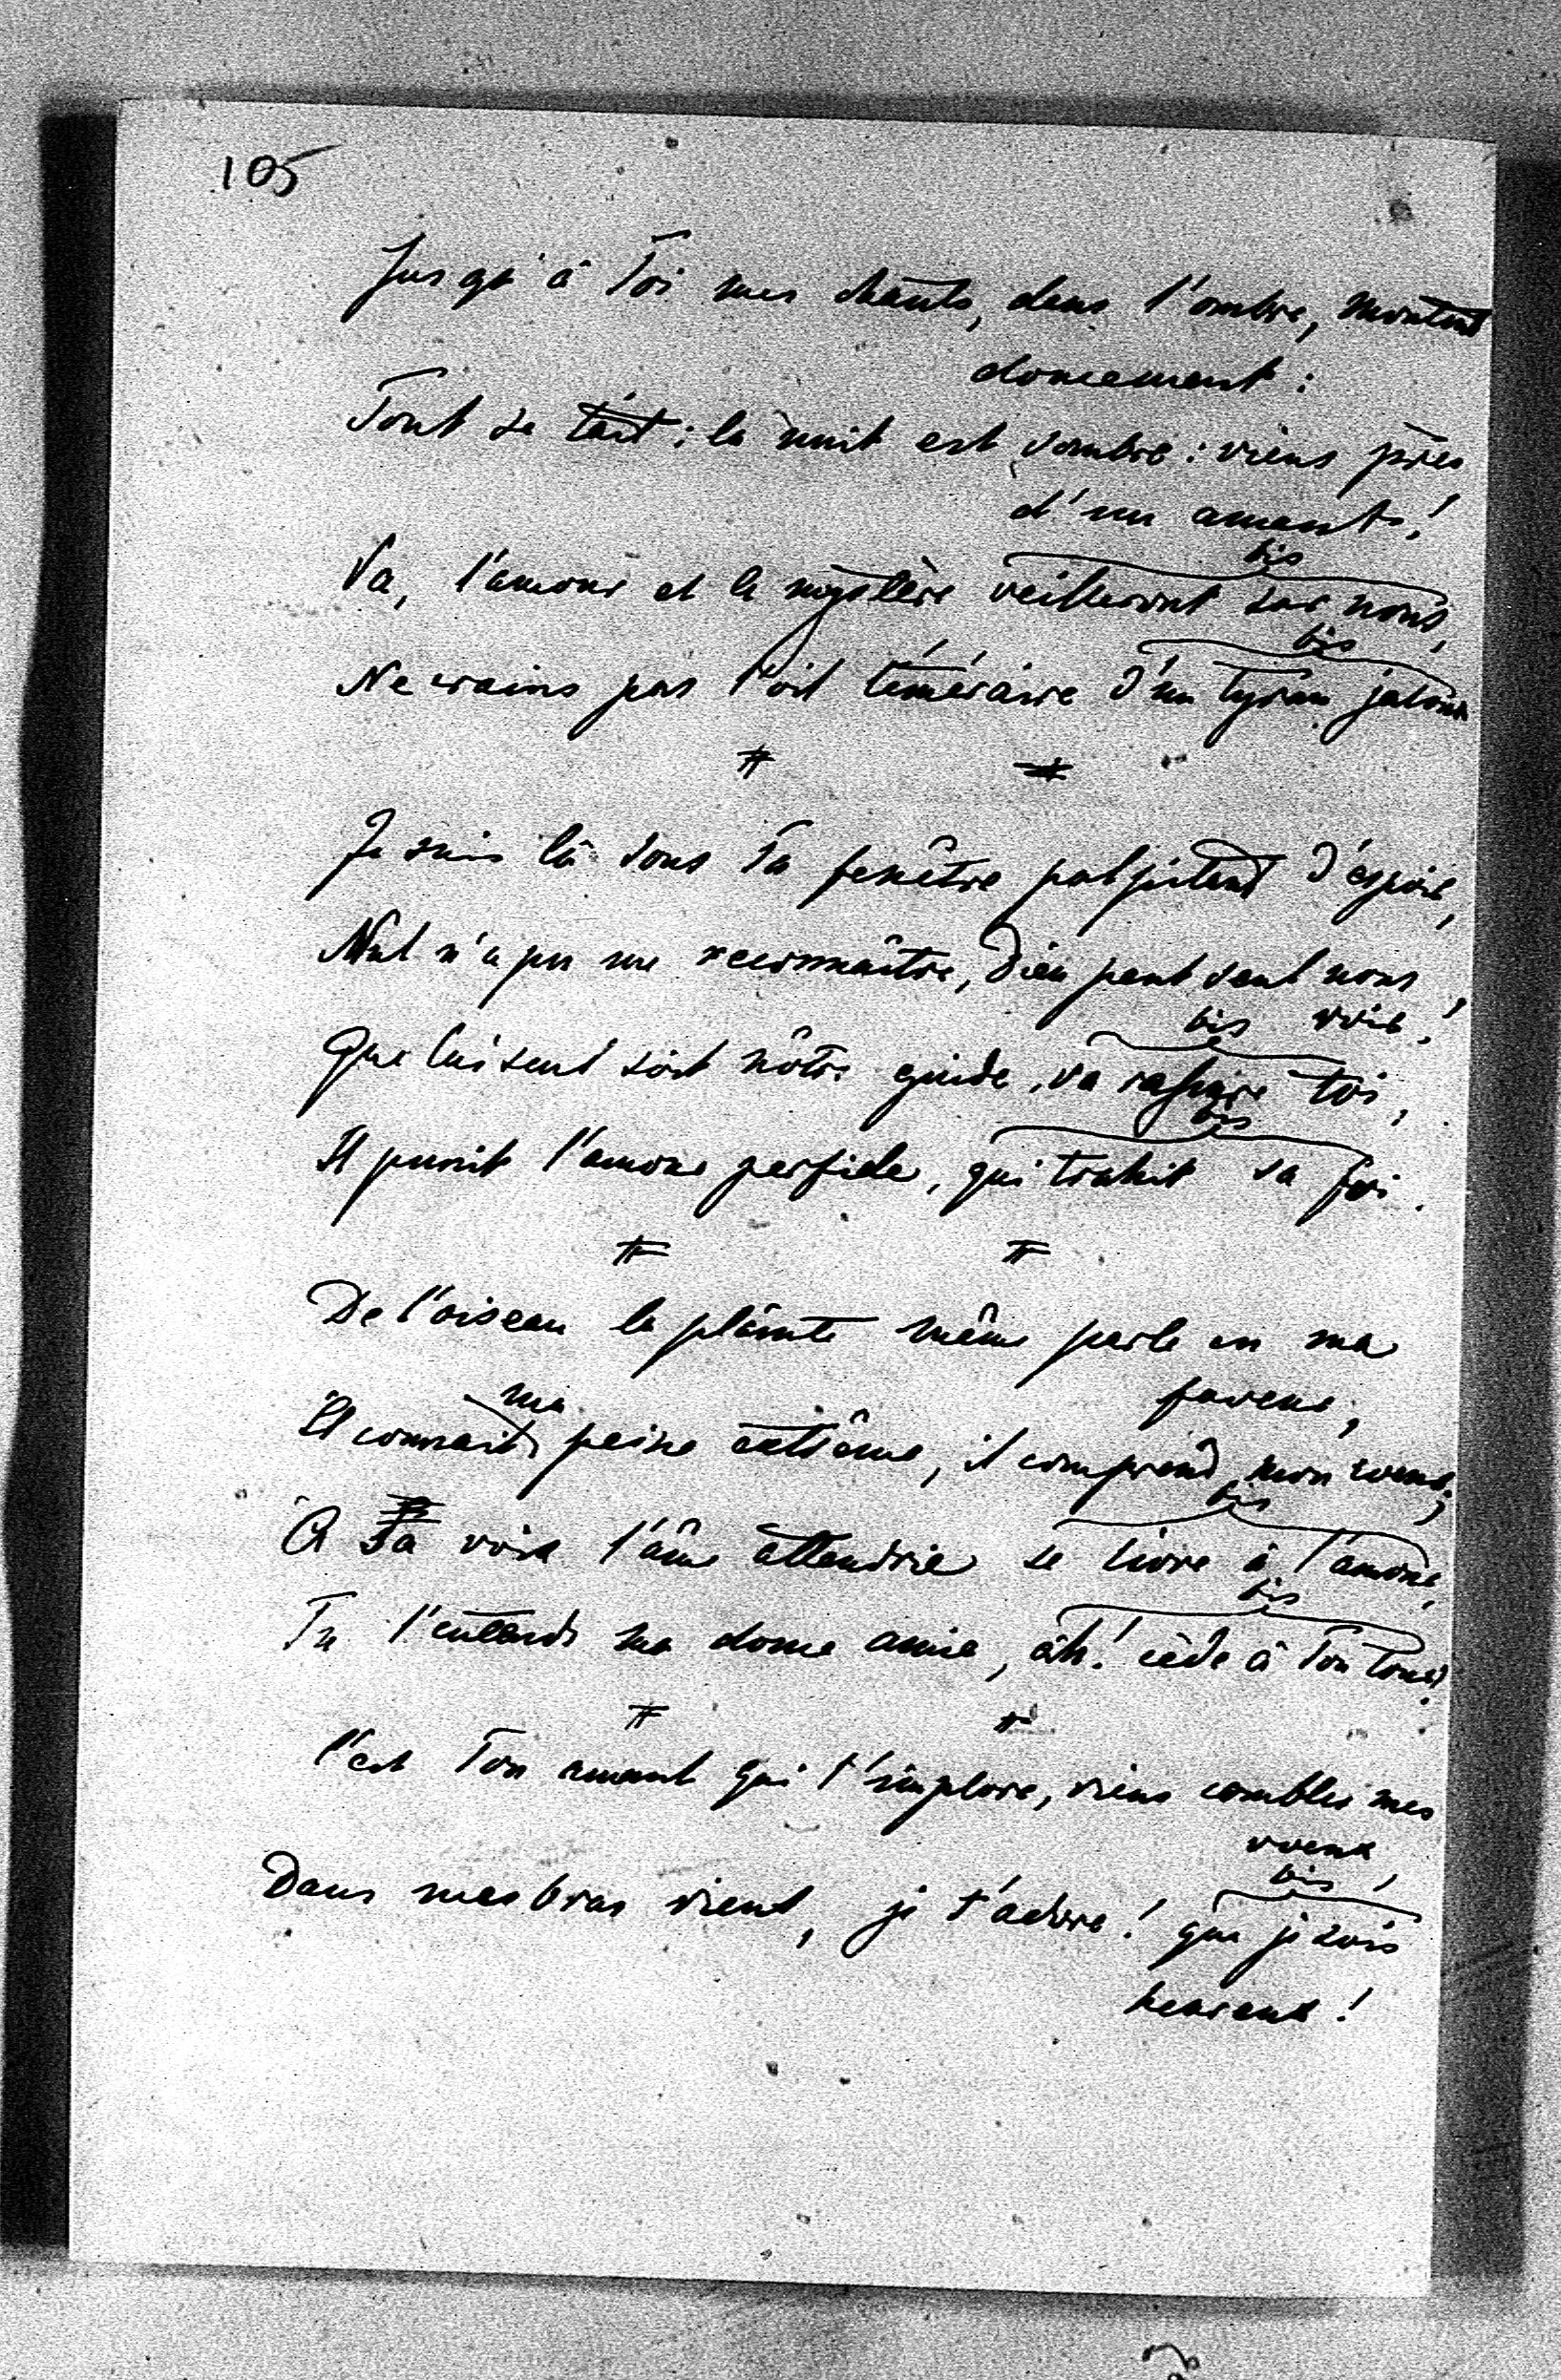 105
Jusqu'à Toi mes chants, dans l'ombre, montent
doucement :
Tout se tait : la nuit est sombre : viens près
d'un amant !
bis
Va, l'amour et le mystère veilleront sur nous,
bis
Ne crains pas l'œil téméraire d'un tyran jaloux
Je suis là sous Ta fenêtre palpitant d'espoir,
Nul n'a pu me reconnaître, Dieu peut seul nous
bis voir !
Que lui seul soit nôtre guide, va rassure toi,
bis
Il punit l'amour perfide, qui trahit sa foi.
De l'oiseau la plainte même parle en ma
faveur,
ma
Il connait peine extrême, il comprend mon cœur ;
bis
A Sa voix l'âme attendrie se livre à l'amour,
bis
Tu l'entends ma douce amie, ah! cède à Ton tour
C'est Ton amant qui t'implore, viens combler mes
vœux,
bis
Dans mes bras vient, je t'adore ! que je sois
heureux !